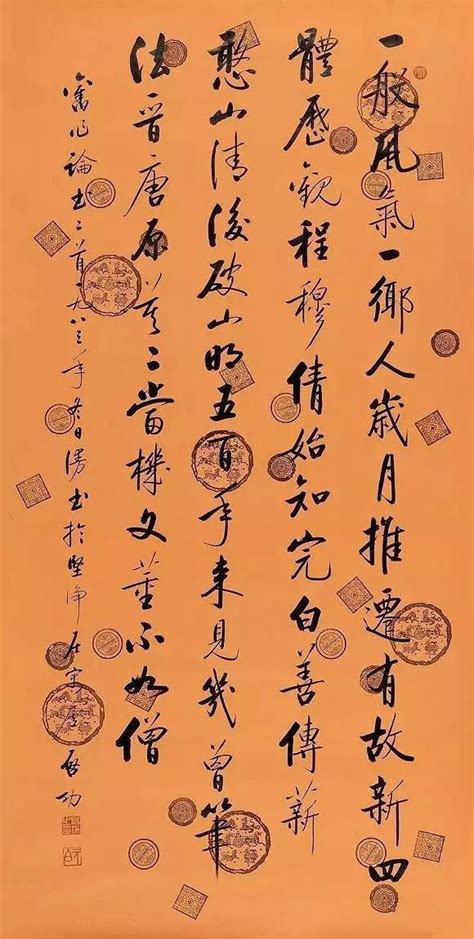 一般風氣一鄉人歲月推遷有故新四
體歷觀程穆倩始知完白善傳薪
憨山清後破山明五百年來見幾曾筆
法晉唐原莫二當機文董不如僧
舊作論書二首一九八三年冬日漫書於堅淨居 啓功